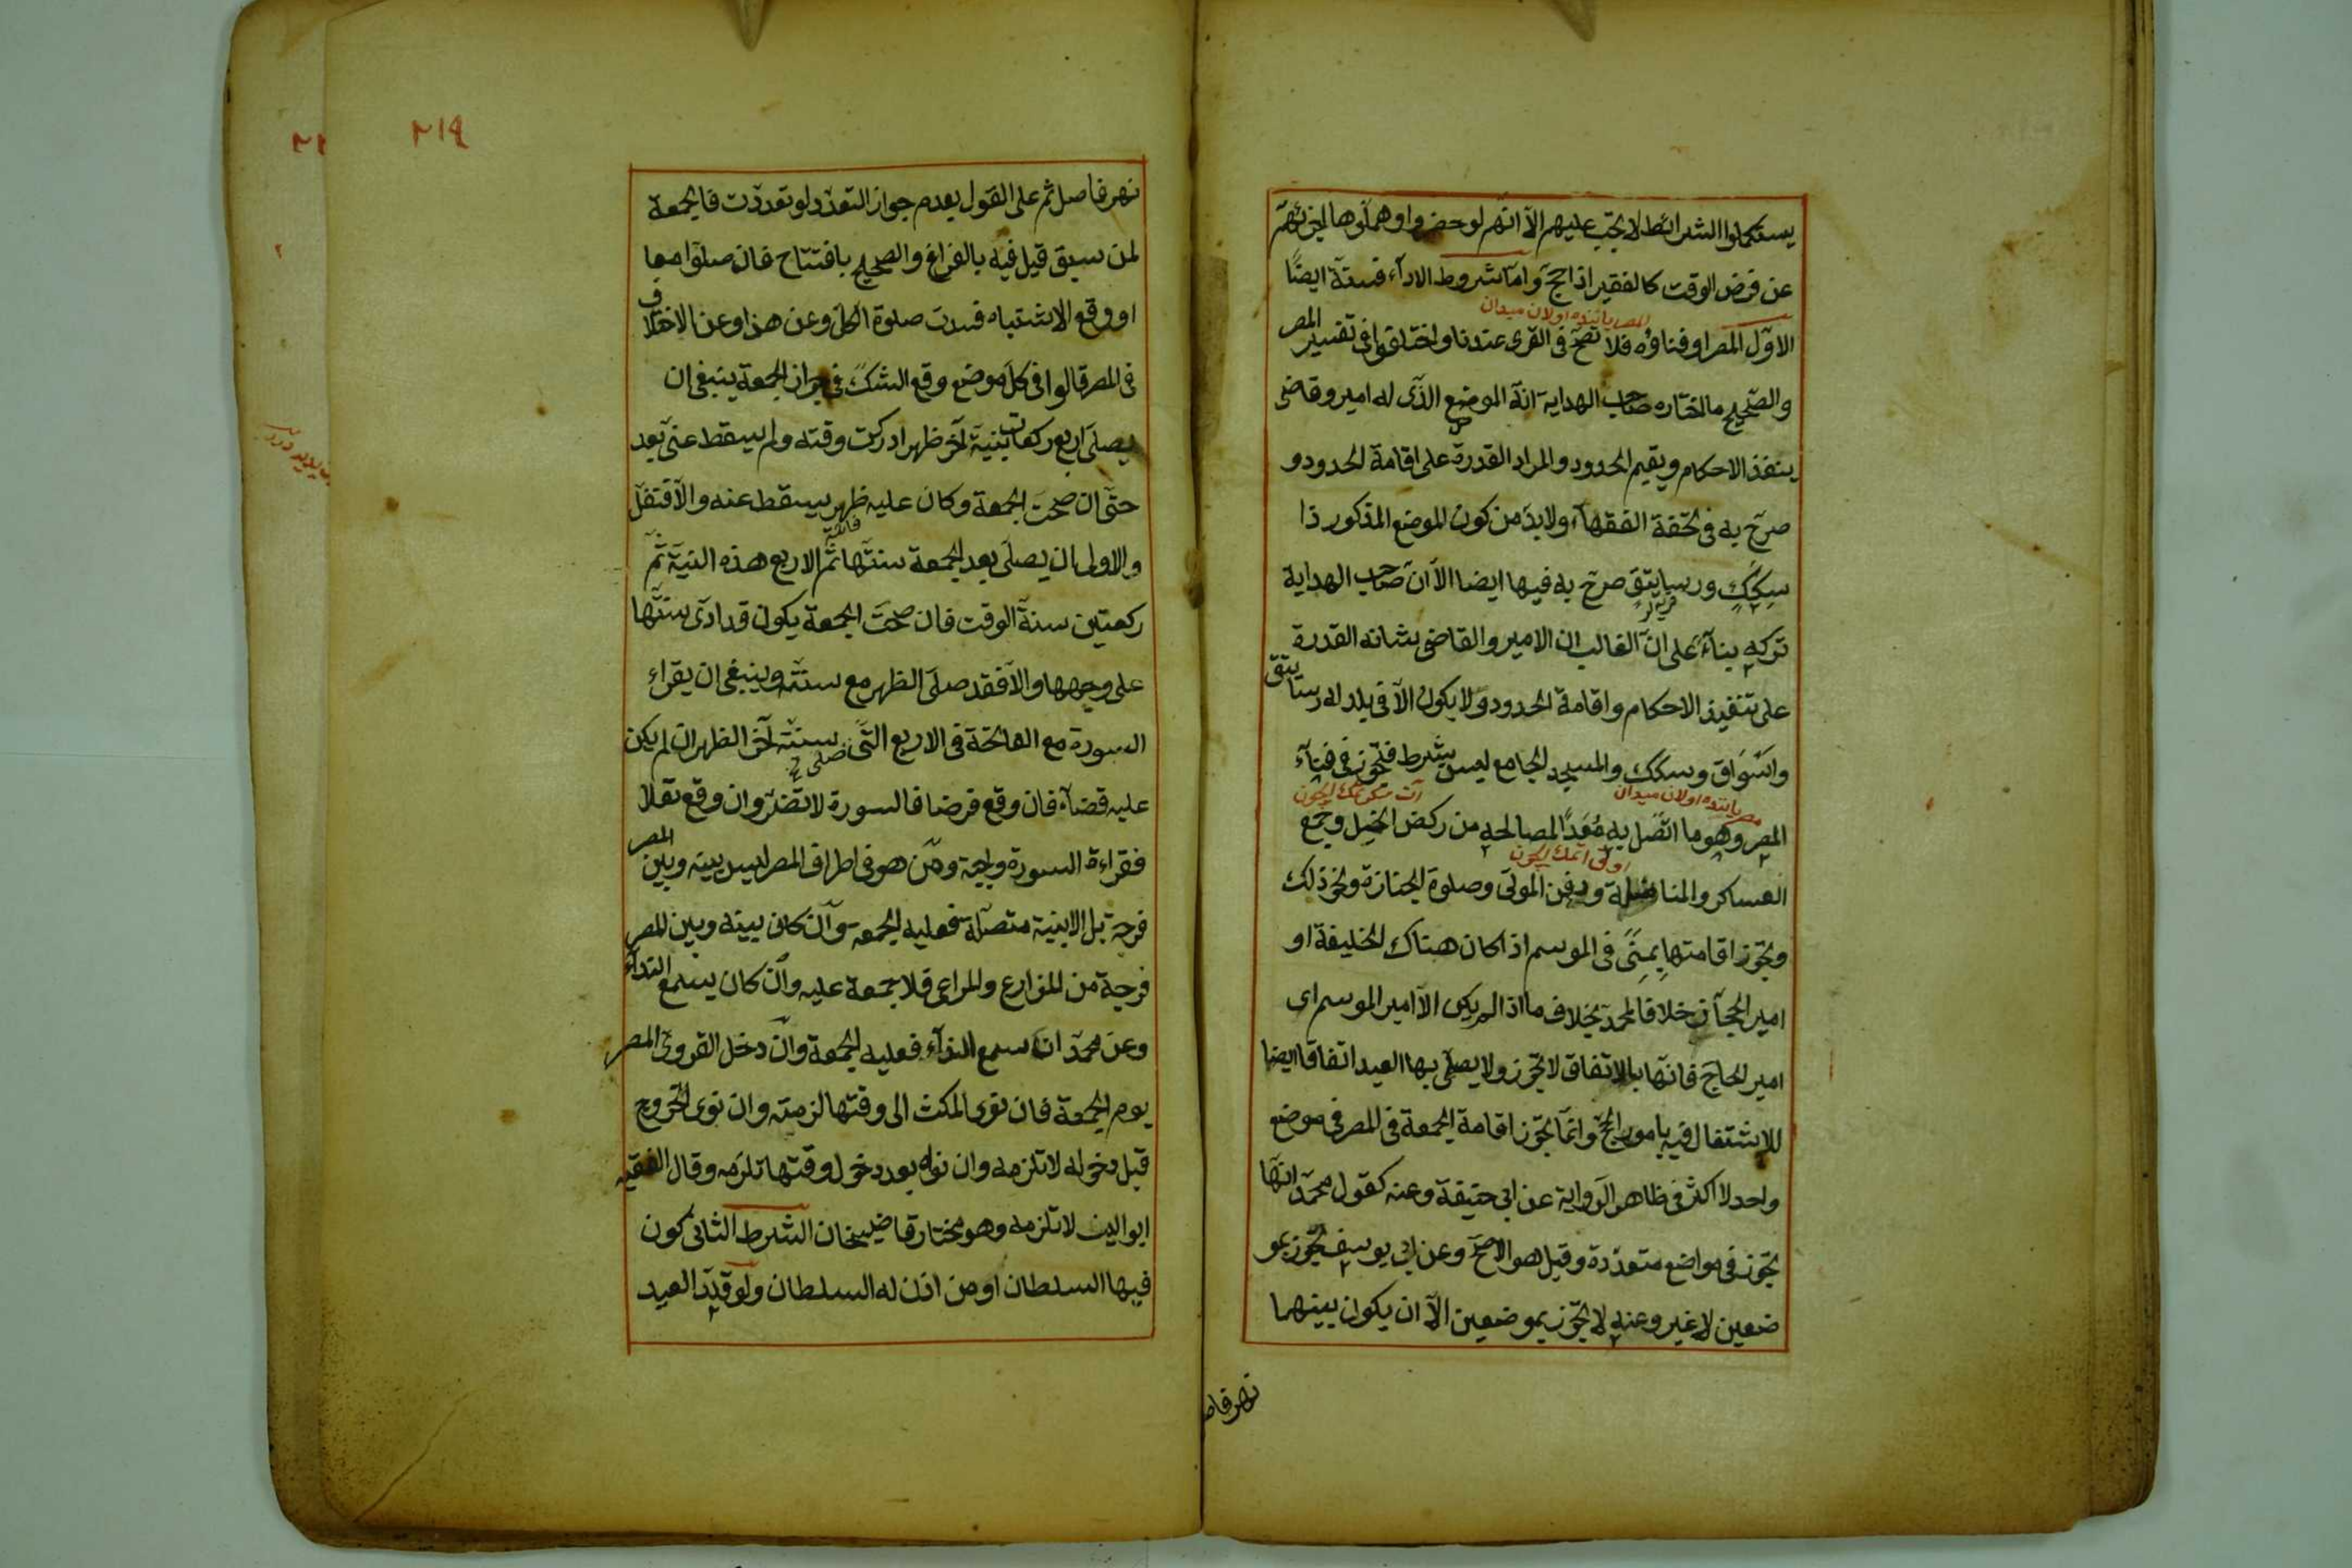 يستكملوا الشرائط لا يجب عليهم الا انهم لو حضروا وصلوها
عن فرض الوقت كالفقير اذا حج واما شروط الاداء فستة ايضا
الاول المصر او فناؤه فلا تصح فى القرى عندنا واختلفوا فى تفسير المصر
والصحيح ما اختاره صاحب الهداية انه الموضع الذى له امير وقاضى
ينفذ الاحكام ويقيم الحدود والمراد القدرة على اقامة الحدود و
صرح به فى تحفة الفقهاء ولا بد من كون الموضع المذكور ذا
سكك ورساتيق صرح به فيها ايضا الا ان صاحب الهداية
تركه بناء على ان الغالب ان الامير والقاضى شانه القدرة
على تنفيذ الاحكام واقامة الحدود ولا يكون الا فى بلد له رساتيق
واسواق وسكك والمسجد الجامع ليس بشرط فتجوز فى فناء
المصر وهو ما اتصل به معدا لمصالحه من ركض الخيل وجمع
العساكر والمناضلة ودفن الموتى وصلوة الجنازة ونحو ذلك
وتجوز اقامتها بمنى فى الموسم اذا كان هناك الخليفة او
امير الحجاز خلافا لمحمد بخلاف ما اذا لم يكن الا امير الموسم اى
امير الحاج فانها بالاتفاق لا تجوز ولا يصلى بها العيد اتفاقا ايضا
للاشتغال فيه بامور الحج وانما تجوز اقامة الجمعة فى المصر فى موضع
واحد لا اكثر فى ظاهر الرواية عن ابى حنيفة وعنه كقول محمد انها
تجوز فى مواضع متعددة وقيل هو الاصح وعن ابى يوسف تجوز بمو
ضعين لا غير وعنه لا تجوز بموضعين الا ان يكون بينهما
نهر فاصل
٢١٩
نهر فاصل ثم على القول بعدم جواز التعدد لو تعددت فالجمعة
لمن سبق قيل فيه بالفراغ والصحيح بافتتاح فان صلوا معا
او وقع الاشتباه فسدت صلوة الكل وعن هذا وعن الاختلاف
فى المصر قالوا فى كل موضع وقع الشك فى جواز الجمعة ينبغى ان
يصلى اربع ركعات بنية آخر ظهر ادركت وقته ولم يسقط عنى بعد
حتى ان صحت الجمعة وكان عليه ظهر يسقط عنه والا فتنفل
والاولى ان يصلى بعد الجمعة سنتها ثم الاربع هذه النية ثم
ركعتين سنة الوقت فان صحت الجمعة يكون قد ادى سنتها
على وجهها والا فقد صلى الظهر مع سنته وينبغى ان يقراء
السورة مع الفاتحة فى الاربع التى سنته آخر الظهر ان لم يكن
عليه قضاء فان وقع فرضا فالسورة لا تضر وان وقع نفلا
فقراءة السورة واجبة ومن هو فى اطراف المصر ليس بينه وبين المصر
فرجة بل الابنية متصلة فعليه الجمعة وان كان بينه وبين المصر
فرجة من المزارع والمراعى فلا جمعة عليه وان كان يسمع النداء
وعن محمد ان سمع النداء فعليه الجمعة وان دخل القروى المصر
يوم الجمعة فان نوى المكث الى وقتها لزمته وان نوى الخروج
قبل دخوله لا تلزمه وان نواه بعد دخول وقتها تلزمه وقال الفقيه
ابو الليث لا تلزمه وهو مختار قاضيخان الشرط الثانى كون
فيها السلطان او من اذن له السلطان ولو قلد العبد